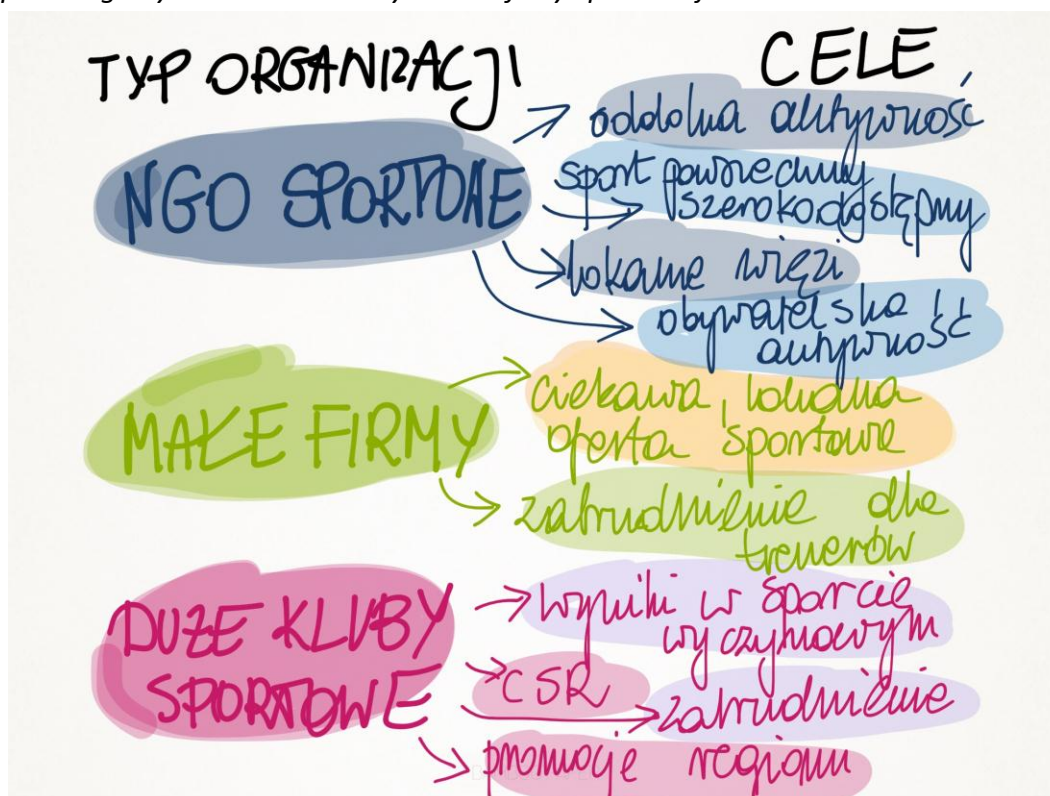 TYP ORGANIZACJI
CELE
NGO SPORTOWE
oddolna aktywność
sport powszechny,
szerokodostępny
lokalne więzi
obywatelska
aktywność
MAŁE FIRMY
ciekawa, lokalna
oferta sportowa
zatrudnienie dla
trenerów
DUŻE KLUBY
SPORTOWE
wyniki w sporcie
wyczynowym
CSR
zatrudnienie
promocje regionu